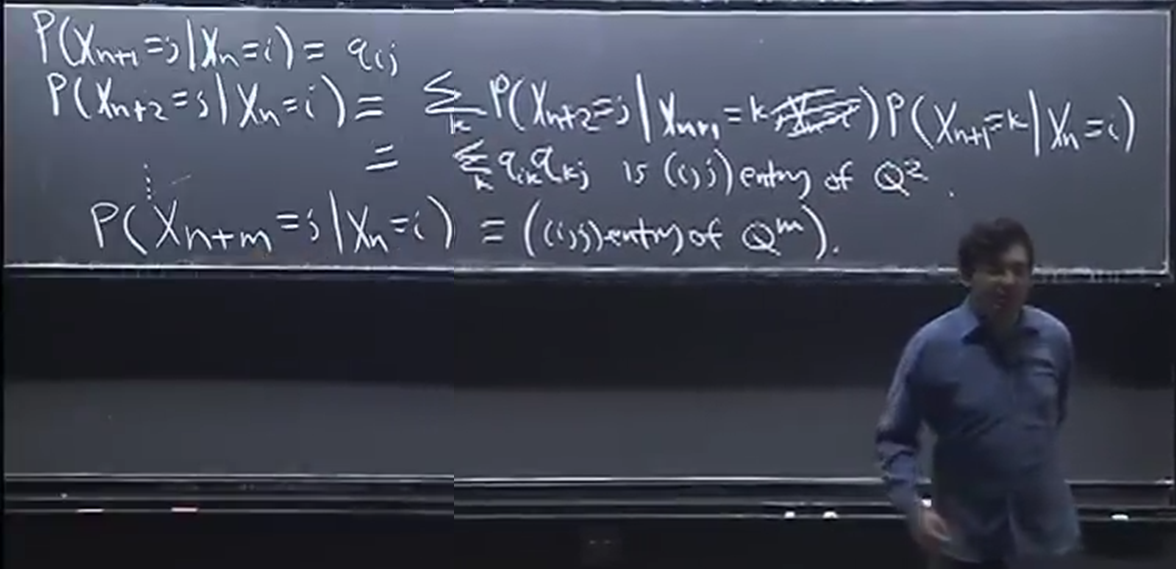 P(Xn+1=j|Xn=i) = qij
P(Xn+2=j|Xn=i) = Σk P(Xn+2=j|Xn+1=k, Xn=i) P(Xn+1=k|Xn=i)
= Σk qik qkj is (i,j) entry of Q².
⋮
P(Xn+m=j|Xn=i) = ((i,j) entry of Qᵐ).